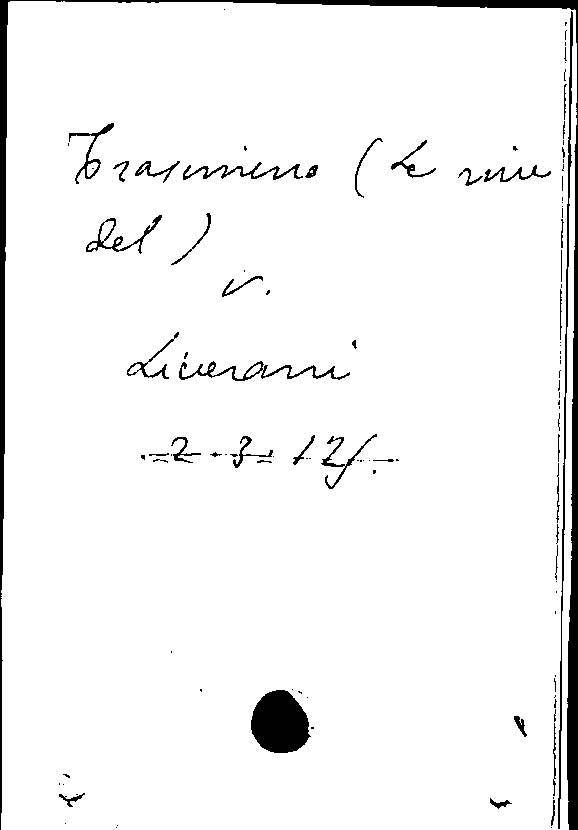 Trasimeno (Le rive
del)
v.
Liverani
2. 3. 12f.